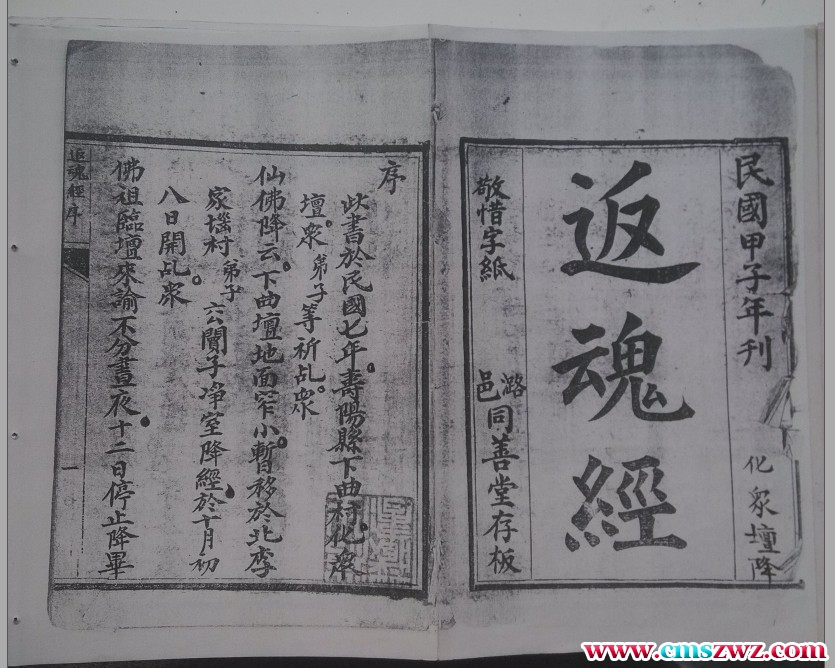 民國甲子年刊
化眾壇降
返魂經
敬惜字紙
潞邑同善堂存板
序
此書於民國七年。壽陽縣下曲村化眾
壇。眾弟子等祈乩。眾
仙佛降云。下曲壇地面窄小。暫移於北李
家堖村弟子子净室降經。於十月初
八日開乩。眾
佛祖臨壇來諭不分晝夜。十二日停止降畢
返魂經序
一
www.cmszwz.com